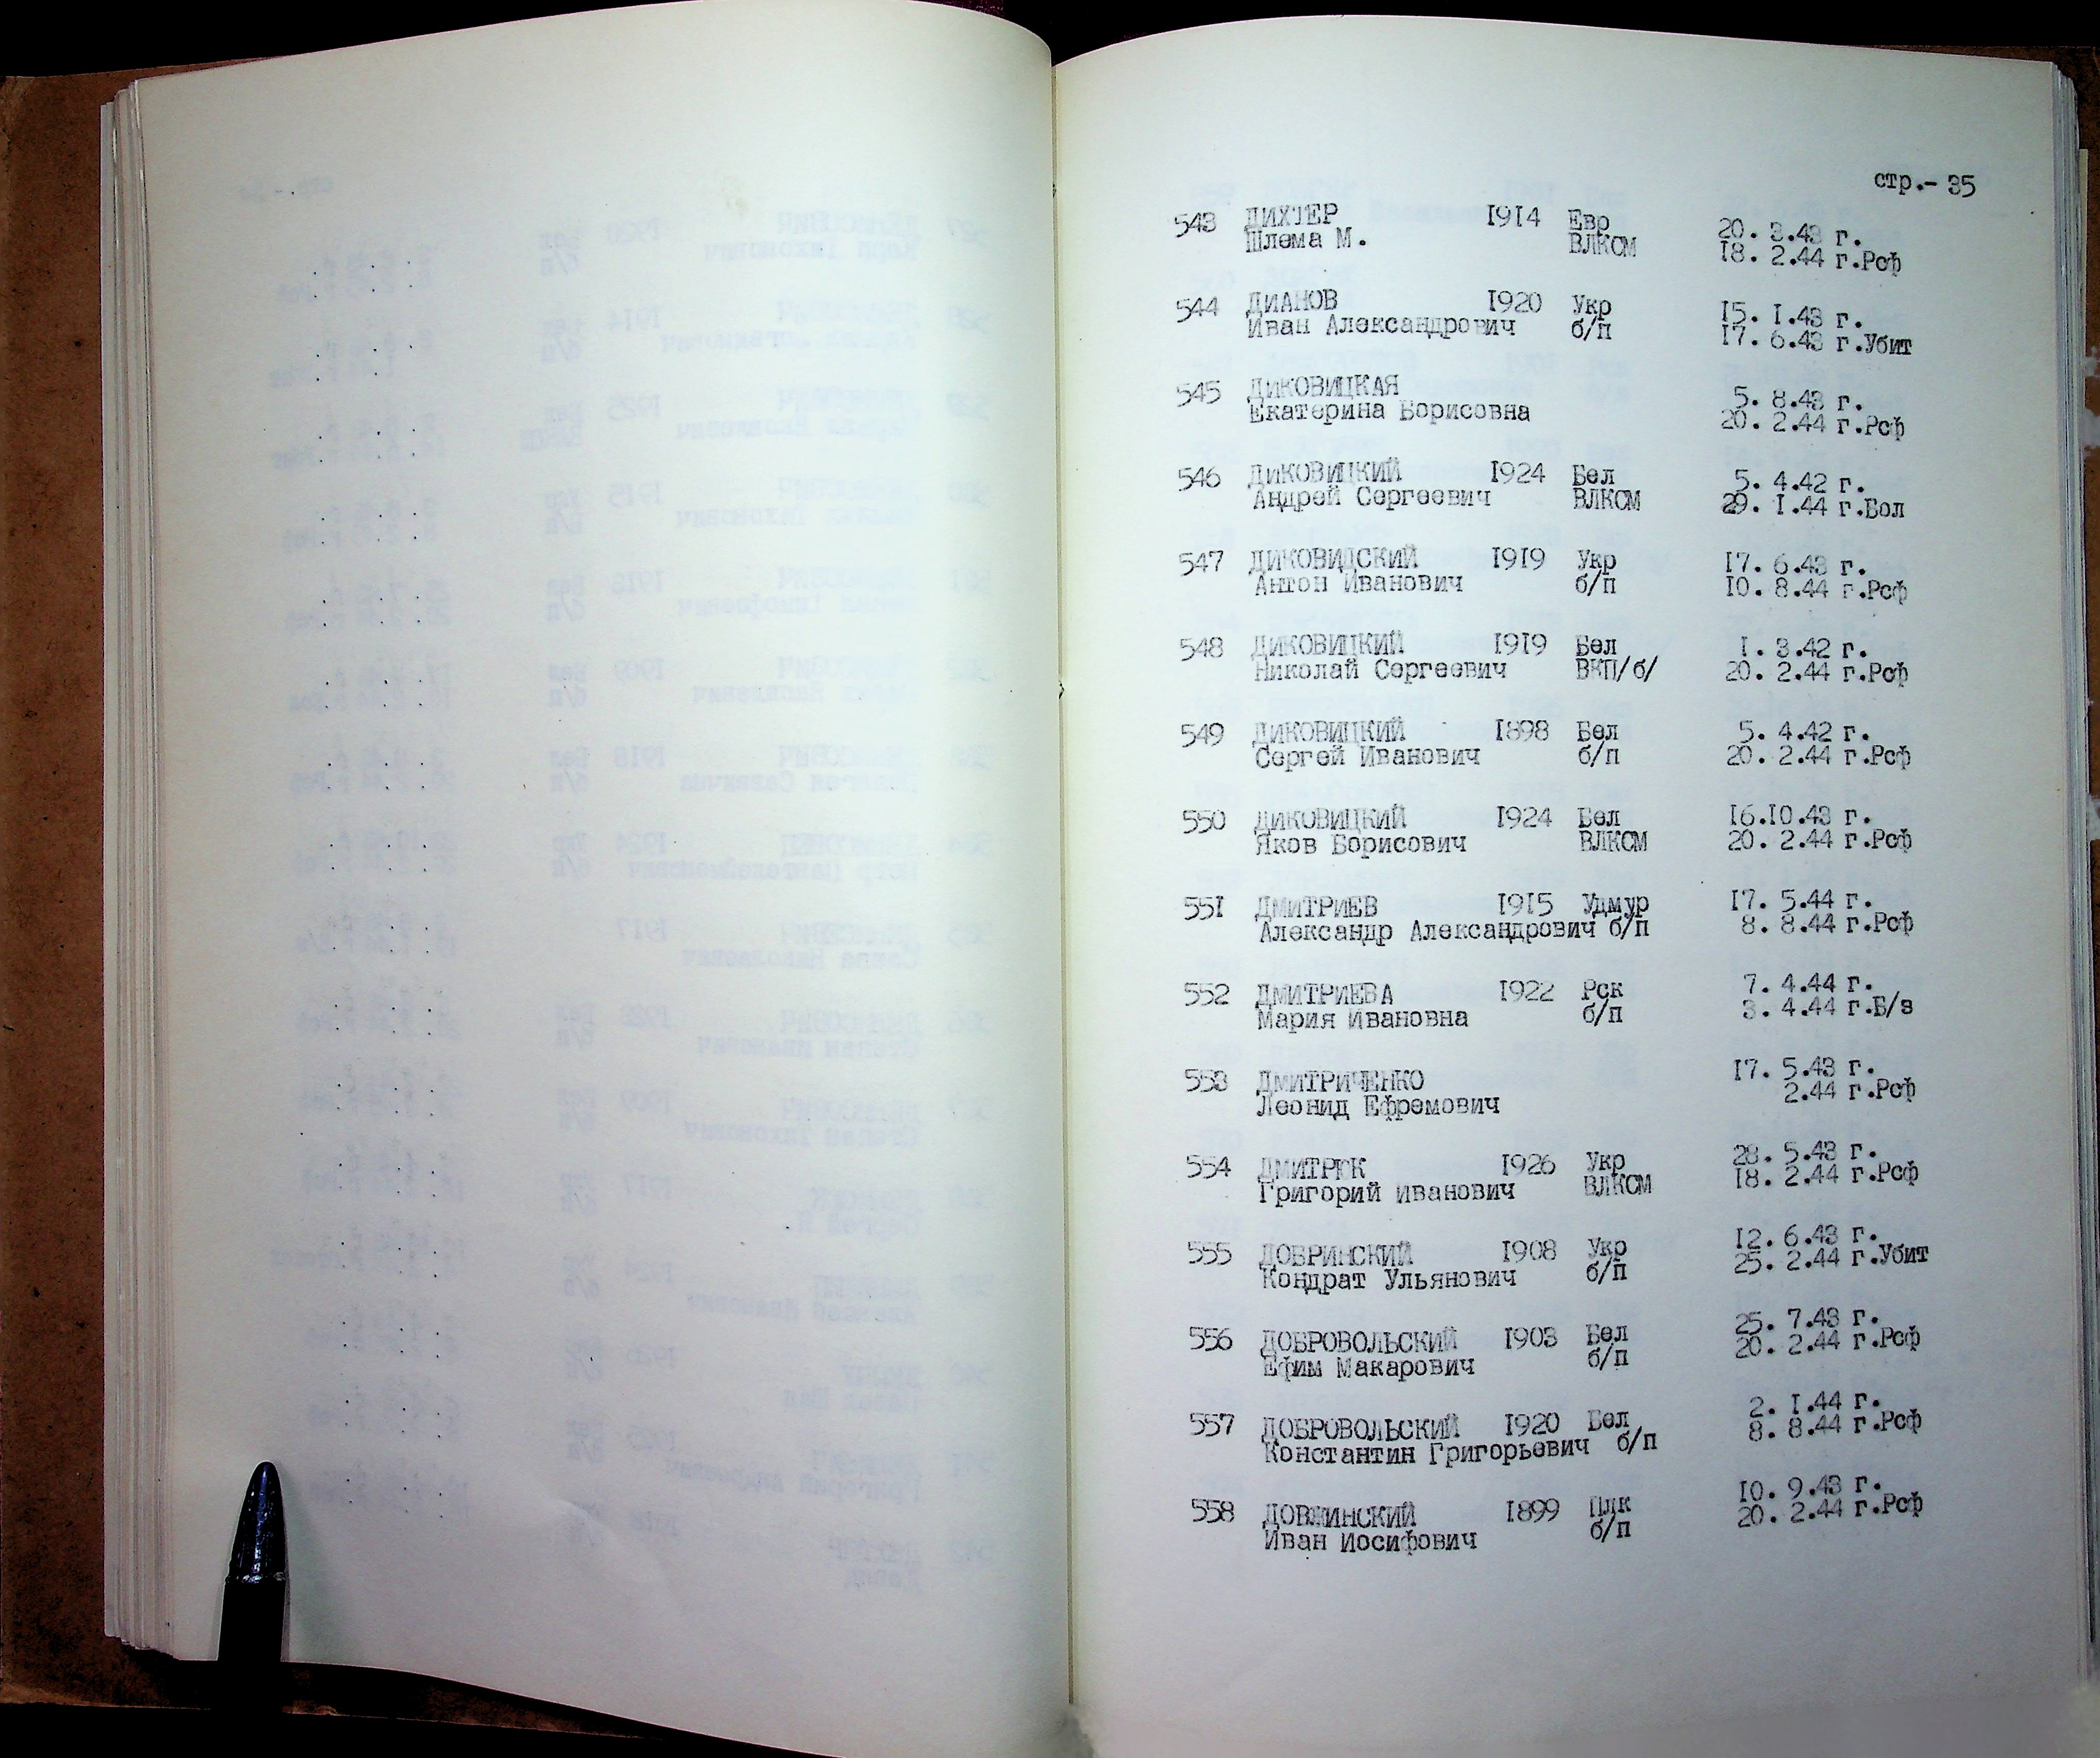 стр.- 35
543 ДИХТЕР 1914 Евр 20. 3.43 г.
Шлема М. ВЛКСМ 18. 2.44 г.Рсф
544 ДИАНОВ 1920 Укр 15. 1.43 г.
Иван Александрович б/п 17. 6.43 г.Убит
545 ДИКОВИЦКАЯ 5. 8.43 г.
Екатерина Борисовна 20. 2.44 г.Рсф
546 ДИКОВИЦКИЙ 1924 Бел 5. 4.42 г.
Андрей Сергеевич ВЛКСМ 29. 1.44 г.Бол
547 ДИКОВИДСКИЙ 1919 Укр 17. 6.43 г.
Антон Иванович б/п 10. 8.44 г.Рсф
548 ДИКОВИЦКИЙ 1919 Бел 1. 3.42 г.
Николай Сергеевич ВКП/б/ 20. 2.44 г.Рсф
549 ДИКОВИЦКИЙ 1898 Бел 5. 4.42 г.
Сергей Иванович б/п 20. 2.44 г.Рсф
550 ДИКОВИЦКИЙ 1924 Бел 16.10.43 г.
Яков Борисович ВЛКСМ 20. 2.44 г.Рсф
551 ДМИТРИЕВ 1915 Удмур 17. 5.44 г.
Александр Александрович б/п 8. 8.44 г.Рсф
552 ДМИТРИЕВА 1922 Рск 7. 4.44 г.
Мария Ивановна б/п 3. 4.44 г.Б/з
553 ДМИТРИЧЕНКО 17. 5.43 г.
Леонид Ефремович 2.44 г.Рсф
554 1926 Укр 28. 5.43 г.
Григорий Иванович ВЛКСМ 18. 2.44 г.Рсф
555 ДОБРИНСКИЙ 1908 Укр 12. 6.43 г.
Кондрат Ульянович б/п 25. 2.44 г.Убит
556 ДОБРОВОЛЬСКИЙ 1903 Бел 25. 7.43 г.
Ефим Макарович б/п 20. 2.44 г.Рсф
557 ДОБРОВОЛЬСКИЙ 1920 Бел 2. 1.44 г.
Константин Григорьевич б/п 8. 8.44 г.Рсф
558 ДОВЖИНСКИЙ 1899 Плк 10. 9.43 г.
Иван Иосифович б/п 20. 2.44 г.Рсф